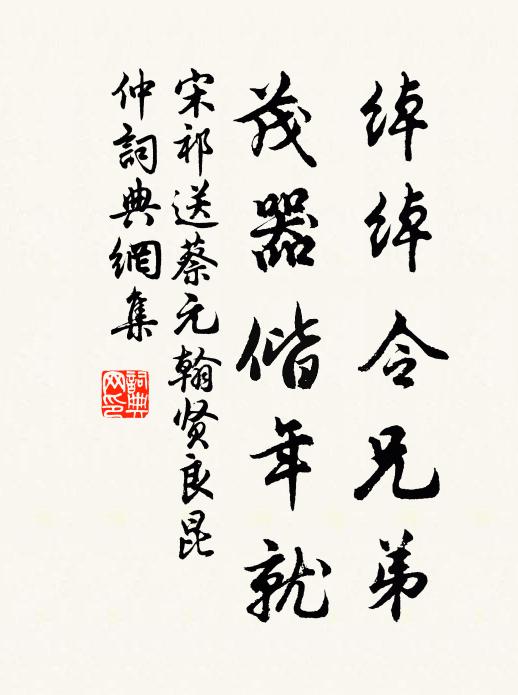 绰绰令兄弟
茂器偕年就
宋祁送蔡元翰贤良昆
仲詞典網集
詞典
网印